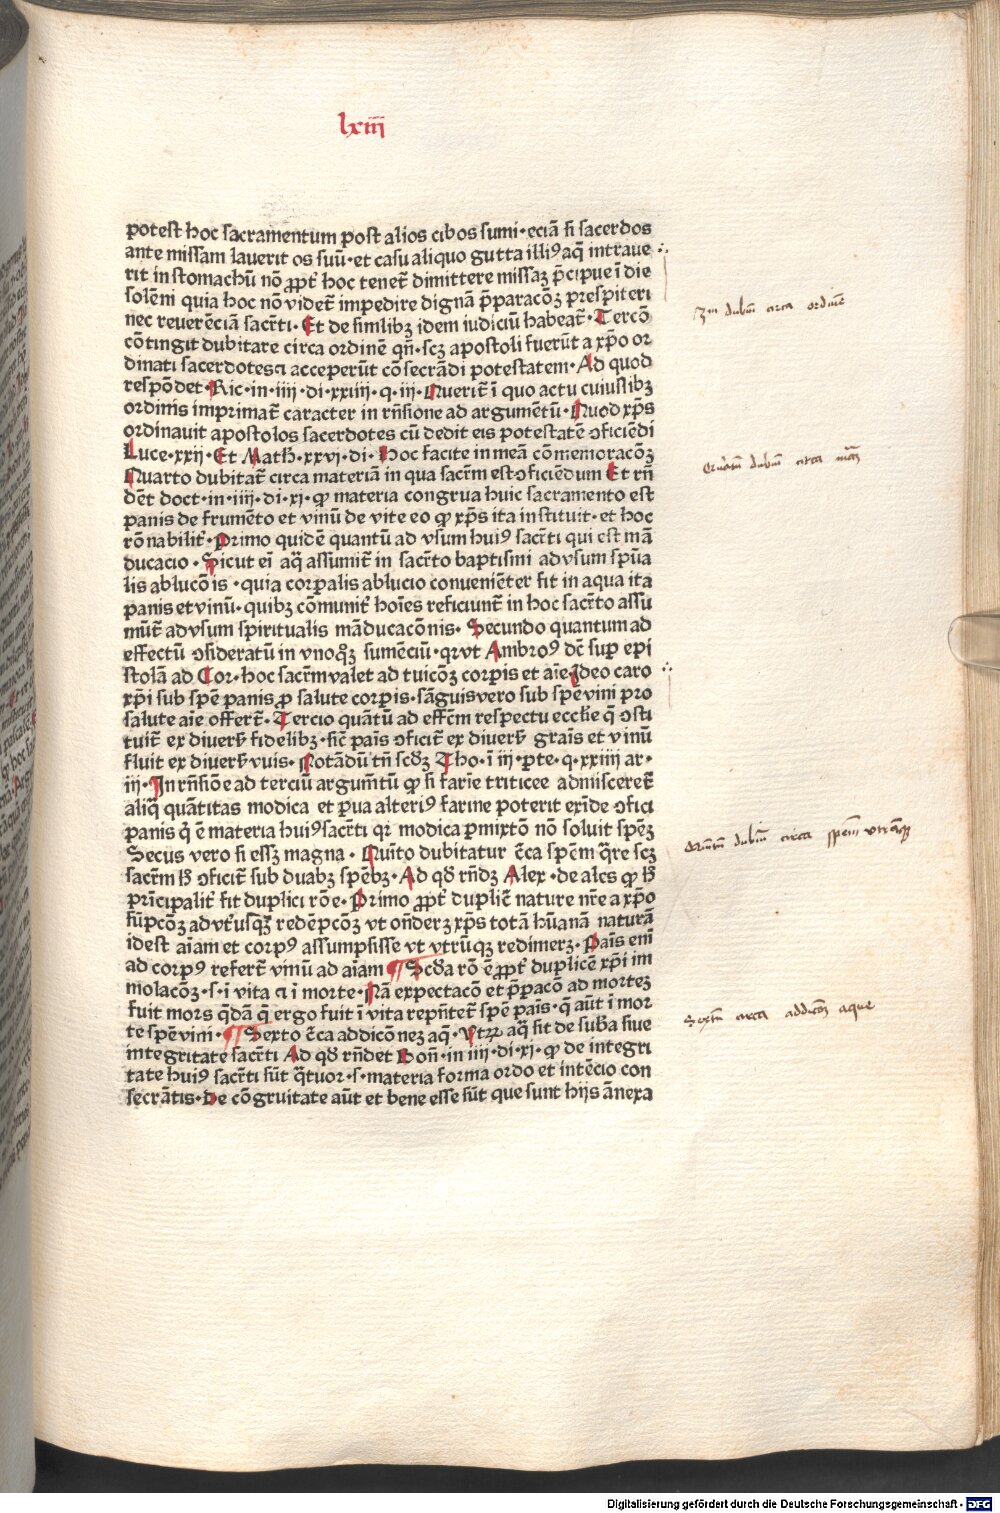 lxiii
potest hoc sacramentum post alios cibos sumi·eciā si sacerdos
ante missam lauerit os suū·et casu aliquo gutta illiꝰ aq̄ intraue
rit in stomachū nō ꝓpt̄ hoc tenet̄ dimittere missaꝫ p̄cipue ī die
solēni quia hoc nō videt̄ impedire dignā p̄paracōꝫ prespiteri
nec reuerēciā sacr̄ti·Et de similibꝫ idem iudiciū habeat̄·Tercō
cōtingit dubitare circa ordinē qn̄·scꝫ apostoli fuerūt a xp̄o or
dinati sacerdotes ⁊ acceperūt cōsecrādi potestatem·Ad quod
respōdet·Ric·in·iiii·di·xxiiii·q·iii·Querit̄ ī quo actu cuiuslibꝫ
ordinis imprimat̄ caracter in rn̄sione ad argumētū·Quod xp̄s
ordinauit apostolos sacerdotes cū dedit eis potestatē ↄficiēdi
Luce·xxij·Et Math̄·xxvj·di·Hoc facite in meā cōmemoracōꝫ
Quarto dubitat̄ circa materiā in qua sacr̄m est ↄficiēdum Et rn̄
dēt doct·in·iiii·di·xj·ꝙ materia congrua huic sacramento est
panis de frumēto et vinū de vite eo ꝙ xp̄s ita instituit·et hoc
rōnabilit̄·Primo quidē quantū ad vsum huiꝰ sacr̄ti qui est mā
ducacio·Sicut ei̅ aq̄ assumit̄ in sacr̄to baptismi ad vsum spūa
lis ablucōis·quia corꝑalis ablucio conueniēter fit in aqua ita
panis et vinū·quibꝫ cōmunit̄ hoīes reficiunt̄ in hoc sacr̄to assu
mūt̄ ad vsum spiritualis māducacōnis·Secundo quantum ad
effectū ↄsideratū in vnoq̄ꝫ sumēciū·qꝛ vt Ambroꝰ dc̄ suꝑ epi
stolā ad Cor·hoc sacr̄m valet ad tuicōꝫ corꝑis et aīe·Ideo caro
xp̄i sub spē panis ꝓ salute corꝑis·sāguis vero sub spē vini pro
salute aīe offert̄·Tercio quātū ad effc̄m respectu eccłie q̄ ↄsti
tuit̄ ex diuers̄ fidelibꝫ·sic̄ paīs ↄficit̄ ex diuers̄ graīs et vinū
fluit ex diuers̄ vuis·Notādū tn̄ scd̄ꝫ Tho·ī iij·ꝑte·q·xxiiij ar·
iij·In rn̄sione ad terciū argum̄tū ꝙ si farīe triticee admisceret̄
aliq̄ quātitas modica et ꝑua alteriꝰ farine poterit exīde ↄfici
panis q̄ ē materia huiꝰ sacr̄ti qꝛ modica ꝑmixtō nō soluit spēꝫ
Secus vero si essꝫ magna·Quīto dubitatur c̄ca spēm q̄re scꝫ
sacr̄m h̄ ↄficit̄ sub duabꝫ spēbꝫ·Ad qd̄ rn̄dꝫ Alex·de ales ꝙ h̄
prīcipalit̄ fit duplici rōe·Primo ꝓpt̄ duplicē nature nr̄e a xp̄o
sūpcōꝫ ad vt̄usqꝫ redēpcōꝫ vt on̄derꝫ xp̄s totā hūanā naturā
idest aīam et corpꝰ assumpsisse vt vtrūqꝫ redimerꝫ·Paīs enī
ad corpꝰ refert̄ vinū ad aīam ¶ Scd̄a rō ē ꝓpt̄ duplicē xp̄i im
molacōꝫ·s·ī vita ⁊ ī morte·Nā expectacō et p̄ꝑacō ad morteꝫ
fuit mors q̄dā q̄ ergo fuit ī vita rep̄ntet̄ spē paīs·q̄ aūt ī mor
te spē vini·¶ Sexto c̄ca addicōneꝫ aq̄·Vtꝛꝫ aq̄ sit de sub̄a siue
integritate sacr̄ti Ad qd̄ rn̄det Bon̄·in iiii·di·xj·ꝙ de integri
tate huiꝰ sacr̄ti sūt q̄tuor·s·materia forma ordo et intēcio con
secrātis·De cōgruitate aūt et bene esse sūt que sunt hijs ānexa
3m dubiū circa ordinē
dubiū circa
dubiū circa spēm vtrāqꝫ
Sextū circa addicōē aque
Digitalisierung gefördert durch die Deutsche Forschungsgemeinschaft - DFG